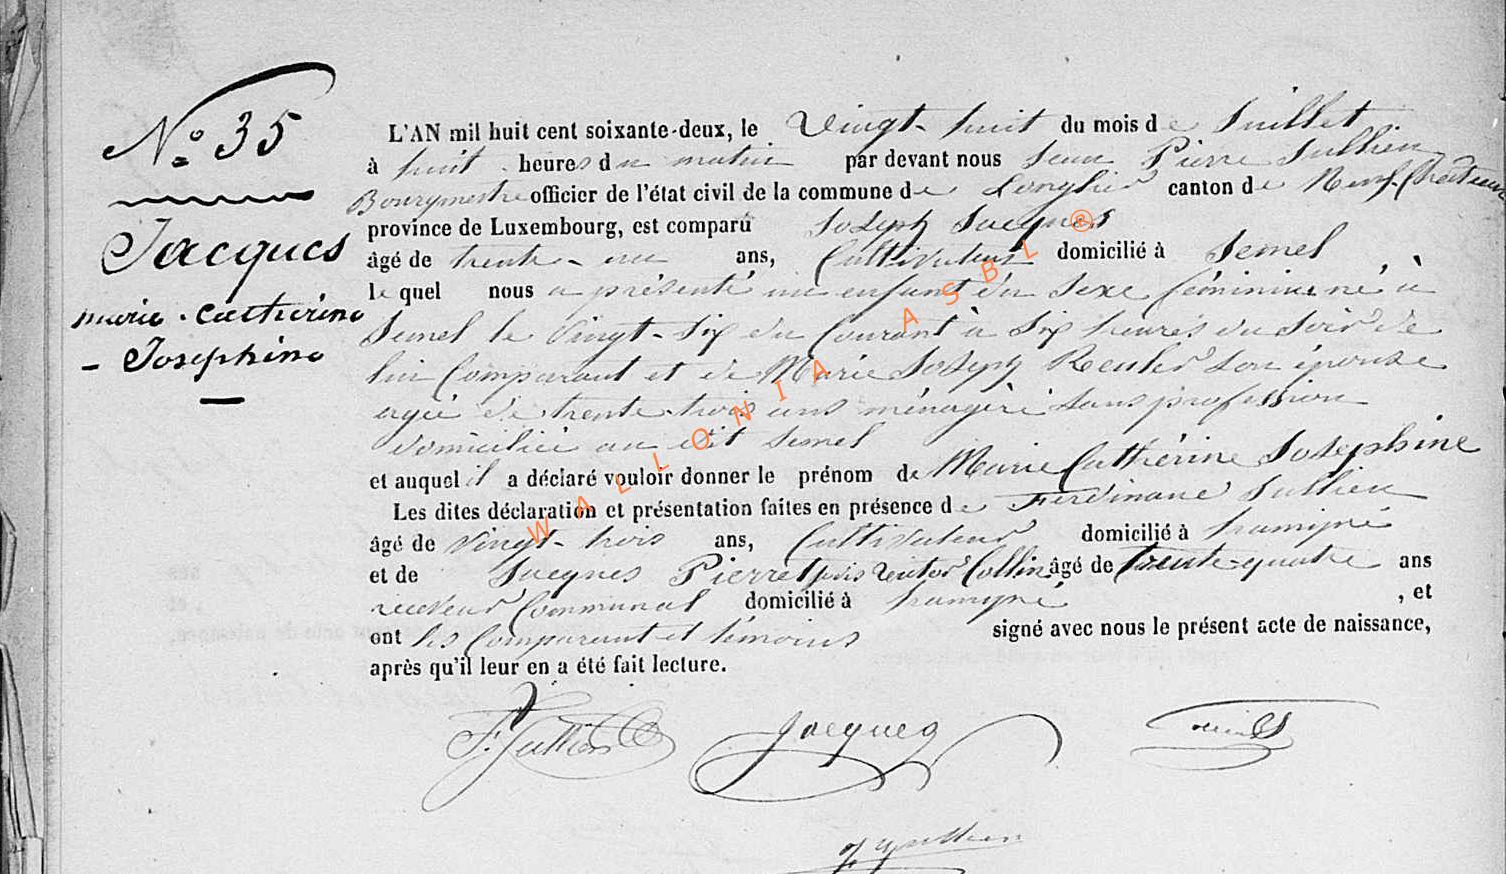 N° 35
Jacques
marie Catherine
- Josephine
L'AN mil huit cent soixante-deux, le Vingt-huit du mois de Juillet
à huit heures du matin par devant nous Jean Pierre Jullien
Bourgmestre officier de l'état civil de la commune de Longlier canton de Neuf-Chateau
province de Luxembourg, est comparu Joseph Jacques
âgé de trente-un ans, Cultivateur domicilié à Semel
le quel nous a présenté un enfant du Sexe féminin né à
Semel le Vingt-Six du Courant à Six heures du Soir de
lui Comparant et de Marie Joseph Reuler Son épouse
agée de trente-trois ans ménagère Sans profession
domiciliée au dit Semel
et auquel il a déclaré vouloir donner le prénom de Marie Cathérine Josephine
Les dites déclaration et présentation faites en présence de Ferdinand Jullien
âgé de Vingt-trois ans, Cultivateur domicilié à
et de Jacques Pierret Collin âgé de trente-quatre ans
receveur Communal domicilié à , et
ont les Comparant et témoins signé avec nous le présent acte de naissance,
après qu'il leur en a été fait lecture.
F. Jullien Jacques
Jullien
WALLONIA ASBL ®